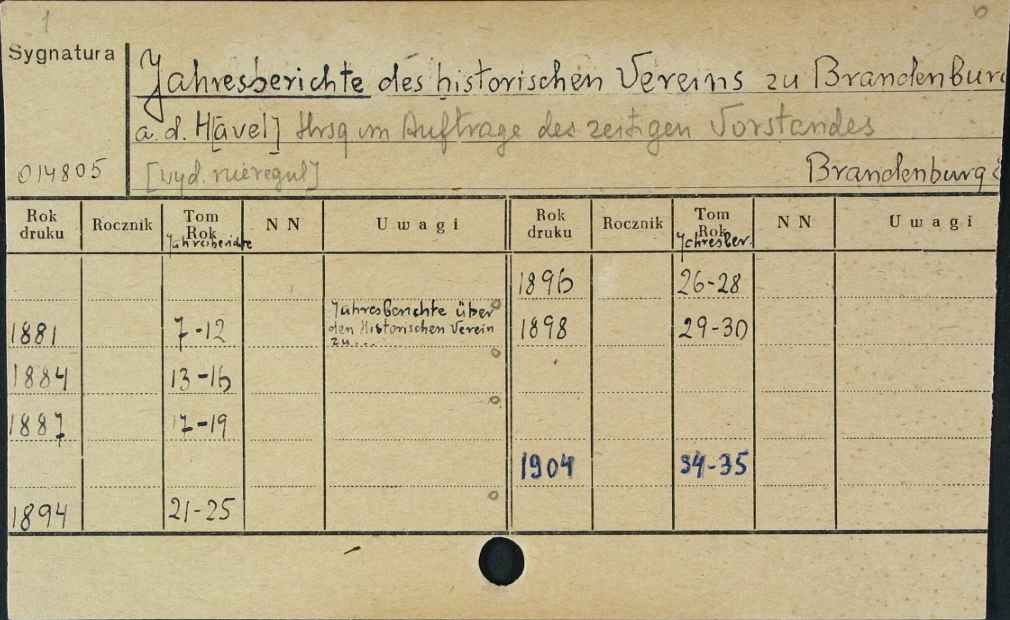 1
6
Sygnatura
Jahresberichte des historischen Vereins zu Brandenburg
a. d. H[avel] Hrsg im Auftrage des zeitigen Vorstandes
014805
[wyd. nieregul]
Brandenburg
Rok druku Rocznik Tom Rok Jahresberichte N N Uwagi Rok druku Rocznik Tom Rok Jahresber. N N Uwagi
1896 26-28
1881 7-12 Jahresberichte über
den Historischen Verein
zu....
1898 29-30
1884 13-16
1887 17-19
1904 34-35
1894 21-25